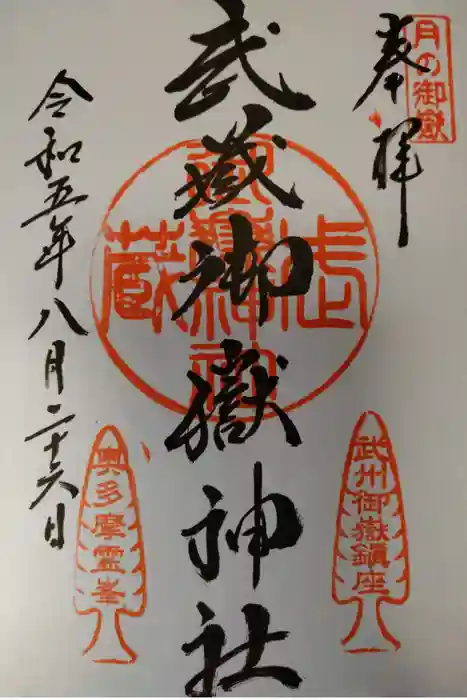 奉拝
月の御嶽
武蔵御嶽神社
武州御嶽鎮座
奥多摩霊峯
令和五年八月二十六日